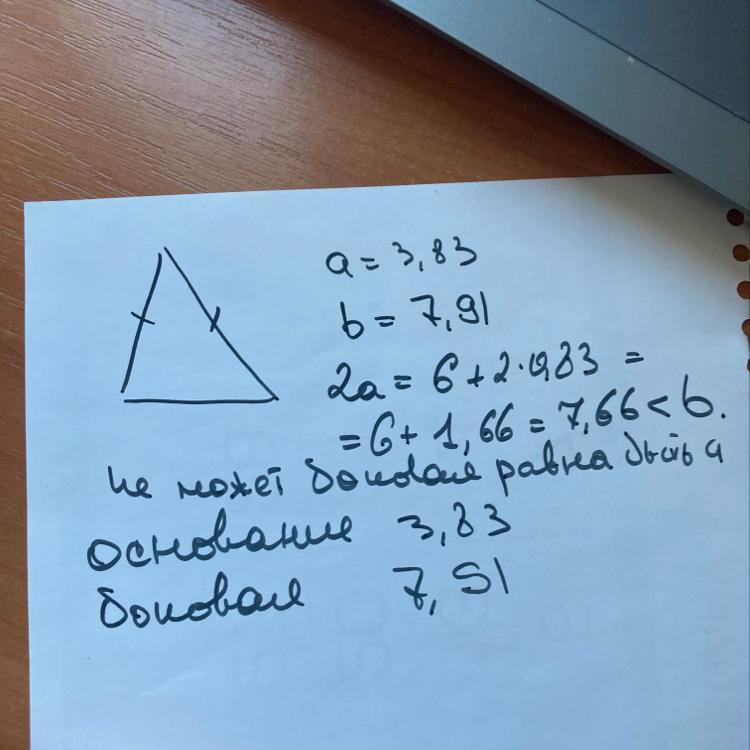 a = 3,83
b = 7,91
2a = 6 + 2·0,83 =
= 6 + 1,66 = 7,66 < b.
не может боковая равна быть a
основание 3,83
боковая 7,91